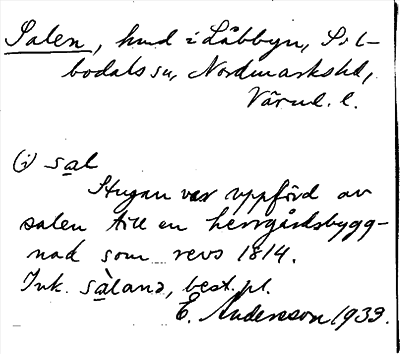 Salen, hmd i Låbbyn, Sil-
bodals sn, Nordmarks hd,
Värml. l.
(i) sal
Stugan var uppförd av
salen till en herrgårdsbygg-
nad som revs 1814.
Ink. sàland, best. pl.
E. Andersson 1933.